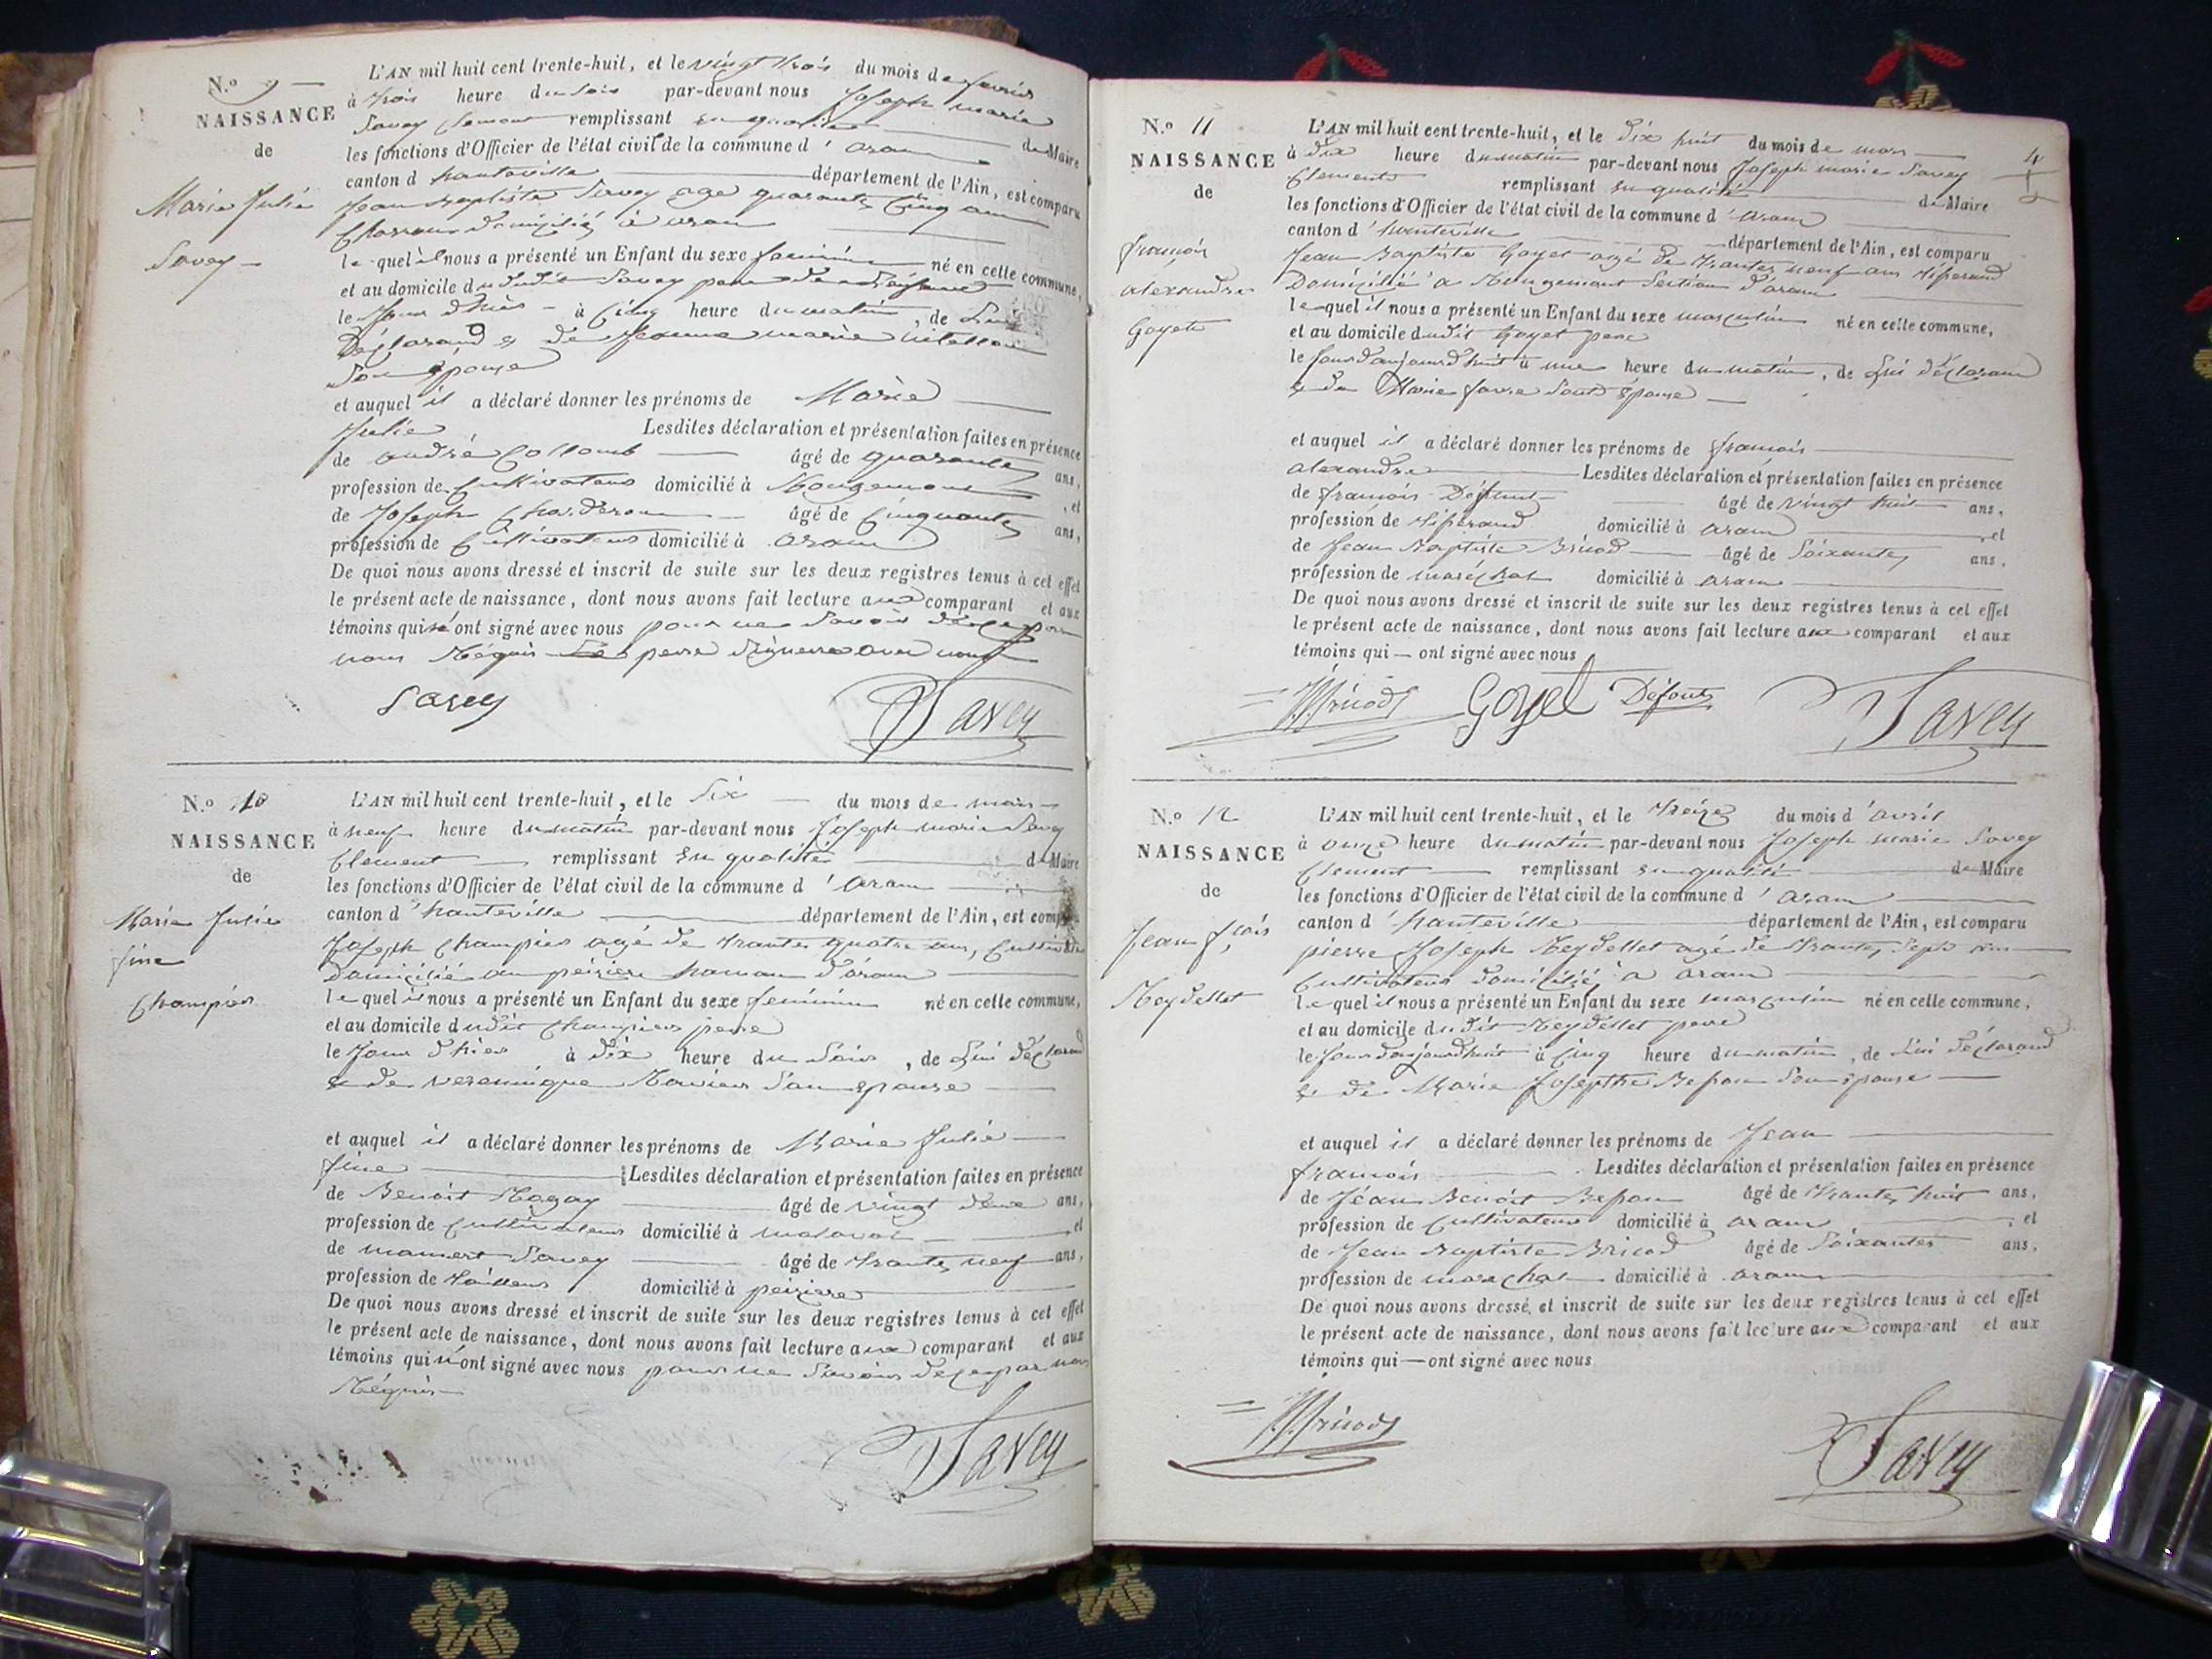 N.o 9
NAISSANCE
de
Marie Julie
Savey
L'AN mil huit cent trente-huit, et le vingt trois du mois de fevrier
à trois heure du soir par-devant nous Joseph marie
Savey Clement remplissant en qualité de Maire
les fonctions d'Officier de l'état civil de la commune d' aran
canton d hauteville département de l'Ain, est comparu
Jean Baptiste Savey age quarante cinq ans
domicilié à aran
le quel il nous a présenté un Enfant du sexe feminin né en cette commune,
et au domicile du dit Savey pere
le Jour d'hier à cinq heure du matin, de Lui
Déclarand & de marie
Son épouse
et auquel il a déclaré donner les prénoms de Marie
Julie Lesdites déclaration et présentation faites en présence
de andré Collomb âgé de quarante ans,
profession de Cultivateur domicilié à Rougemont, et
de Joseph Charderon âgé de Cinquante ans,
profession de Cultivateur domicilié à aran
De quoi nous avons dressé et inscrit de suite sur les deux registres tenus à cet effet
le présent acte de naissance, dont nous avons fait lecture aux comparant et aux
témoins qui n'ont signé avec nous pour ne Savoir de ce par
nous Réquis Le pere Signera avec nous
Savey Savey
N.o 10
NAISSANCE
de
Marie Julie
fine
Champier
L'AN mil huit cent trente-huit, et le Six du mois de mars
à neuf heure du matin par-devant nous Joseph marie Savey
Clement remplissant En qualité de Maire
les fonctions d'Officier de l'état civil de la commune d' aran
canton d' hauteville département de l'Ain, est comparu
Joseph Champier agé de trante quatre ans, Cultivateur
Domicilié au peiziere hamau d'aran
le quel il nous a présenté un Enfant du sexe feminin né en cette commune,
et au domicile dudit Champier pere
le Jour d'hier à dix heure du Soir, de Lui déclarand
& de veronique Ravier Son epouse
et auquel il a déclaré donner les prénoms de Marie Julie
fine Lesdites déclaration et présentation faites en présence
de Benoit Magay âgé de vingt deux ans,
profession de Cultivateur domicilié à malaval et
de mamert Savey âgé de trante neuf ans,
profession de tailleur domicilié à peiziere
De quoi nous avons dressé et inscrit de suite sur les deux registres tenus à cet effet
le présent acte de naissance, dont nous avons fait lecture aux comparant et aux
témoins qui n'ont signé avec nous pour ne Savoir de ce par nous
Réquis
Savey
N.o 11
NAISSANCE
de
françois
alexandre
Goyet
L'AN mil huit cent trente-huit, et le dix huit du mois de mars
à dix heure du matin par-devant nous Joseph marie Savey
Clement remplissant En qualité de Maire
les fonctions d'Officier de l'état civil de la commune d' aran
canton d' hauteville département de l'Ain, est comparu
Jean Baptiste Goyet agé de trante neuf ans tisserand
Domicilié a Rougemont Section d'aran
le quel il nous a présenté un Enfant du sexe masculin né en cette commune,
et au domicile dudit Goyet pere
le Jour d'aujourd'huit à une heure du matin, de Lui déclarand
& de Marie favre Sont épouse
et auquel il a déclaré donner les prénoms de françois
alexandre Lesdites déclaration et présentation faites en présence
de françois Défunt âgé de vingt huit ans,
profession de tisserand domicilié à aran, et
de Jean Baptiste Bricod âgé de Soixante ans,
profession de maréchal domicilié à aran
De quoi nous avons dressé et inscrit de suite sur les deux registres tenus à cet effet
le présent acte de naissance, dont nous avons fait lecture aux comparant et aux
témoins qui ont signé avec nous
Bricod Goyet Savey
N.o 12
NAISSANCE
de
Jean fçois
Reydellet
L'AN mil huit cent trente-huit, et le treize du mois d'avril
à onze heure du matin par-devant nous Joseph marie Savey
Clement remplissant en qualité de Maire
les fonctions d'Officier de l'état civil de la commune d' aran
canton d' hauteville département de l'Ain, est comparu
pierre Joseph Reydellet agé de trante Sept ans
Cultivateur domicilié a aran
le quel il nous a présenté un Enfant du sexe masculin né en cette commune,
et au domicile du dit Reydellet pere
le Jour d'aujourd'huit à cinq heure du matin, de Lui déclarand
& de Marie Josepthe Son épouse
et auquel il a déclaré donner les prénoms de Jean
françois Lesdites déclaration et présentation faites en présence
de Jean Benoit âgé de trante huit ans,
profession de Cultivateur domicilié à aran, et
de Jean Baptiste Bricod âgé de Soixante ans,
profession de marechal domicilié à aran
De quoi nous avons dressé et inscrit de suite sur les deux registres tenus à cet effet
le présent acte de naissance, dont nous avons fait lecture aux comparant et aux
témoins qui ont signé avec nous
Bricod Savey